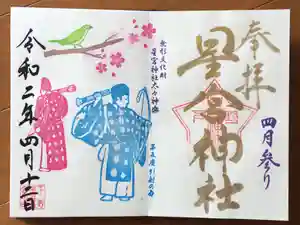 奉拝
四月参り
星宮神社
無形文化財
星宮神社太々神楽
令和二年四月十二日